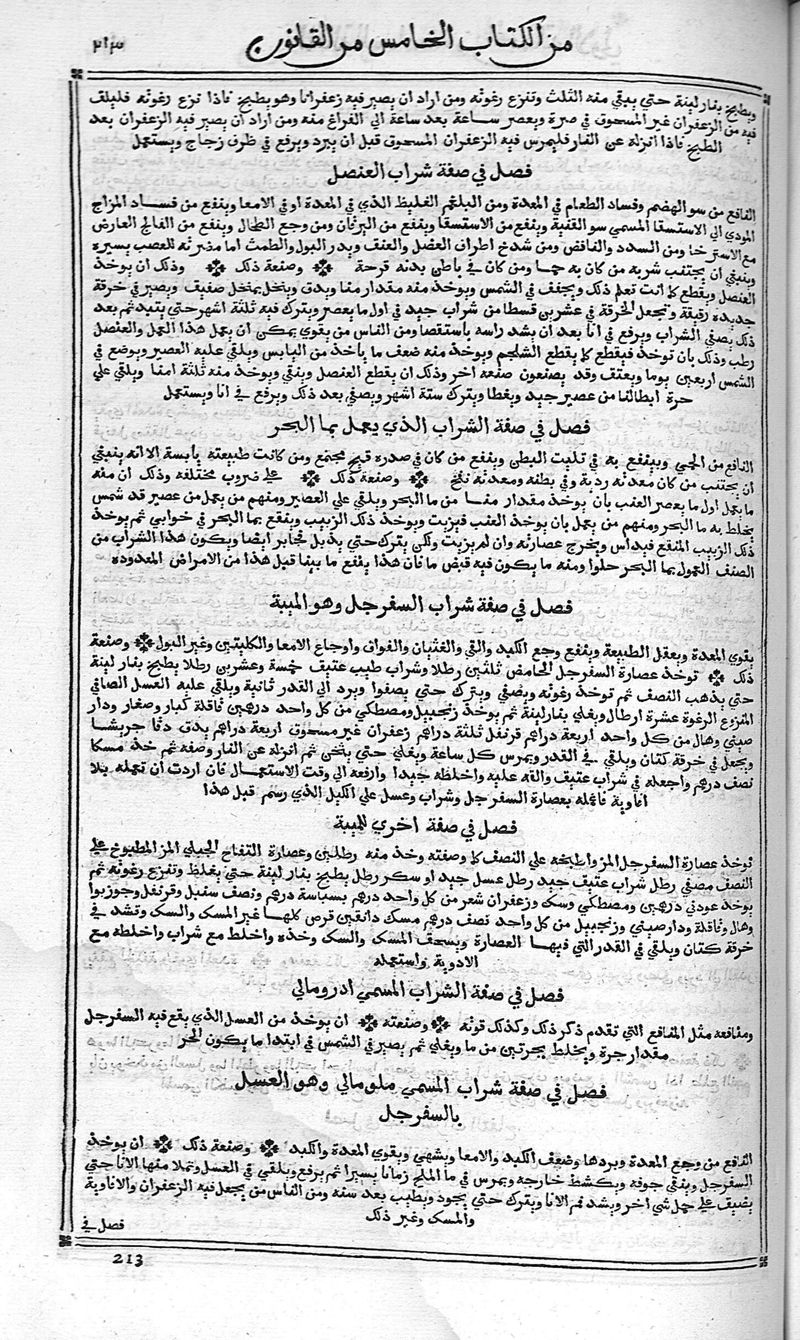 من الكتاب الخامس من القانون
٢١٣
ويطبخ بنار لينة حتي يبقي منه الثلث وتنزع رغوته ومن اراد ان يصير فيه زعفرانا وهو يطبخ فاذا نزع رغوته فليلف
فيه من الزعفران غير المسحوق في صرة ويعصر ساعة بعد ساعة الي الفراغ منه ومن اراد ان يصير فيه الزعفران بعد
الطبخ فاذا انزله عن النار فليمرس فيه الزعفران المسحوق قبل ان يبرد ويرفع في ظرف زجاج ويستعمل
فصل في صفة شراب العنصل
النافع من سو الهضم وفساد الطعام في المعدة ومن البلغم الغليظ الذي في المعدة او في الامعا وينفع من فساد المزاج
المودي الي الاستسقا المسمي سو القنية وينفع من الاستسقا وينفع من اليرقان ومن وجع الطحال وينفع من الفالج العارض
مع الاسترخا ومن السدد والنافض ومن شدخ اطراف العضل والعنف ويدر البول والطمث اما مضرته للعصب يسيره
وينبغي ان يجتنب شربه من كان به حما ومن كان في باطن بدنه قرحة وصنعة ذلك وذلك ان يوخذ
العنصل ويقطع كما انت تعلم ذلك ويجفف في الشمس ويوخذ منه مقدار منا ويدق وينخل بمنخل صفيف ويصير في خرقة
جديده رقيقة وتجعل الخرقة في عشرين قسطا من شراب جيد في اول ما يعصر ويترك فيه ثلثة اشهر حتي ثم بعد
ذلك يصفي الشراب ويرفع في انا بعد ان يشد راسه باستقصا ومن الناس من يقوي يمكن ان يعمل هذا العمل والعنصل
رطب وذلك بان توخذ فيقطع كما يقطع الشلجم ويوخذ منه ضعف ما ياخذ من اليابس ويلقي عليه العصير ويوضع في
الشمس اربعين يوما ويعتف وقد يصنعون صنعه اخر وذلك ان يقطع العنصل وينقي ويوخذ منه ثلثة امنا ويلقي علي
جرة ايطالنا من عصير جيد ويغطا ويترك ستة اشهر ويصفي بعد ذلك ويرفع في انا ويستعمل
فصل في صفة الشراب الذي يعمل بما البحر
النافع من الحمي وينتفع به في تليت البطن وينفع من كان في صدره قيح مجتمع ومن كانت طبيعته يابسة الا انه ينبغي
ان يجتنب من كان معدته ردية وفي بطنه ومعدته نفخ وصنعة ذلك علي ضروب مختلفه وذلك ان منه
ما يعمل اول ما يعصر العنب بان يوخذ مقدار منا من ما البحر ويلقي علي العصير ومنهم من يعمل من عصير قد شمس
يخلط به ما البحر ومنهم من يعمل بان يوخذ العنب فيزبب ويوخذ ذلك الزبيب وينقع بما البحر في خوابي ثم يوخذ
ذلك الزبيب المنقع فيداس ويخرج عصارته وان لم يزبب ولكن يترك حتي يذبل جاز ايضا ويكون هذا الشراب من
الصنف المعمول بما البحر حلوا ومنه ما يكون فيه قبض ما فان هذا ينفع ما بينا قبل هذا من الامراض المعدوده
فصل في صفة شراب السفرجل وهو الميبة
يقوي المعدة ويعقل الطبيعة وينفع وجع الكبد والقي والغثيان والفواق واوجاع الامعا والكليتين وغير البول وصنعة
ذلك توخذ عصارة السفرجل الحامض ثلثين رطلا وشراب طيب عتيق خمسة وعشرين رطلا يطبخ بنار لينة
حتي يذهب النصف ثم توخذ رغوته ويصفي ويترك حتي يصفوا ويرد الي القدر ثانية ويلقي عليه العسل الصافي
المنزوع الرغوة عشرة ارطال ويغلي بنار لينة ثم يوخذ زنجبيل ومصطكي من كل واحد درهمين قاقلة كبار وصغار ودار
صيني وهال من كل واحد اربعة دراهم قرنفل ثلثة دراهم زعفران غير مسحوق اربعة دراهم يدق دقا جريشا
ويجعل في خرقة كتان ويلقي في القدر ويمرس كل ساعة ويغلي حتي يثخن ثم انزله عن النار وصفه ثم خذ مسكا
نصف درهم واجعله في شراب عتيق والقه عليه واخلطه جيدا وارفعه الي وقت الاستعمال فان اردت ان تعمله بلا
افاوية فاعمله بعصارة السفرجل وشراب وعسل علي الكيل الذي رسم قبل هذا
فصل في صفة اخري للميبة
توخذ عصارة السفرجل المز واطبخه علي النصف كما وصفته وخذ منه رطلين وعصارة التفاح الجبلي المز المطبوخ علي
النصف مصفي رطل شراب عتيق جيد رطل عسل جيد او سكر رطل يطبخ بنار لينة حتي يغلظ وتنزع رغوته ثم
يوخذ عودني درهمين ومصطكي وسك وزعفران شعر من كل واحد درهم بسباسة درهم ونصف سنبل وقرنفل وجوزبوا
وهال وقاقلة ودارصيني وزنجبيل من كل واحد نصف درهم مسك دانقين قرص كلها غير المسك والسك وتشد في
خرقة كتان ويلقي في القدر التي فيها العصارة ويسحق المسك والسك وخذه واخلط مع شراب واخلطه مع
الادوية واستعمله
فصل في صفة الشراب المسمي ادرومالي
ومنافعه مثل المنافع التي تقدم ذكر ذلك وكذلك قوته وصنعته ان يوخذ من العسل الذي يقع فيه السفرجل
مقدار جرة ويخلط بجرتين من ما ويغلي ثم يصير في الشمس في ابتدا ما يكون الحر
فصل في صفة شراب المسمي ملومالي وهو العسل
بالسفرجل
النافع من وجع المعدة وبردها وضعف الكبد والامعا ويشهي ويقوي المعدة والكبد وصنعة ذلك ان يوخذ
السفرجل وينقي جوفه ويكشط خارجه ويمرس في ما الملح زمانا يسيرا ثم يرفع ويلقي في العسل وتملا منها الانا حتي
يضيف علي حمل شي اخر ويشد فم الانا ويترك حتي يجود ويطيب بعد سنه ومن الناس من يجعل فيه الزعفران والافاوية
والمسك وغير ذلك
فصل في
213